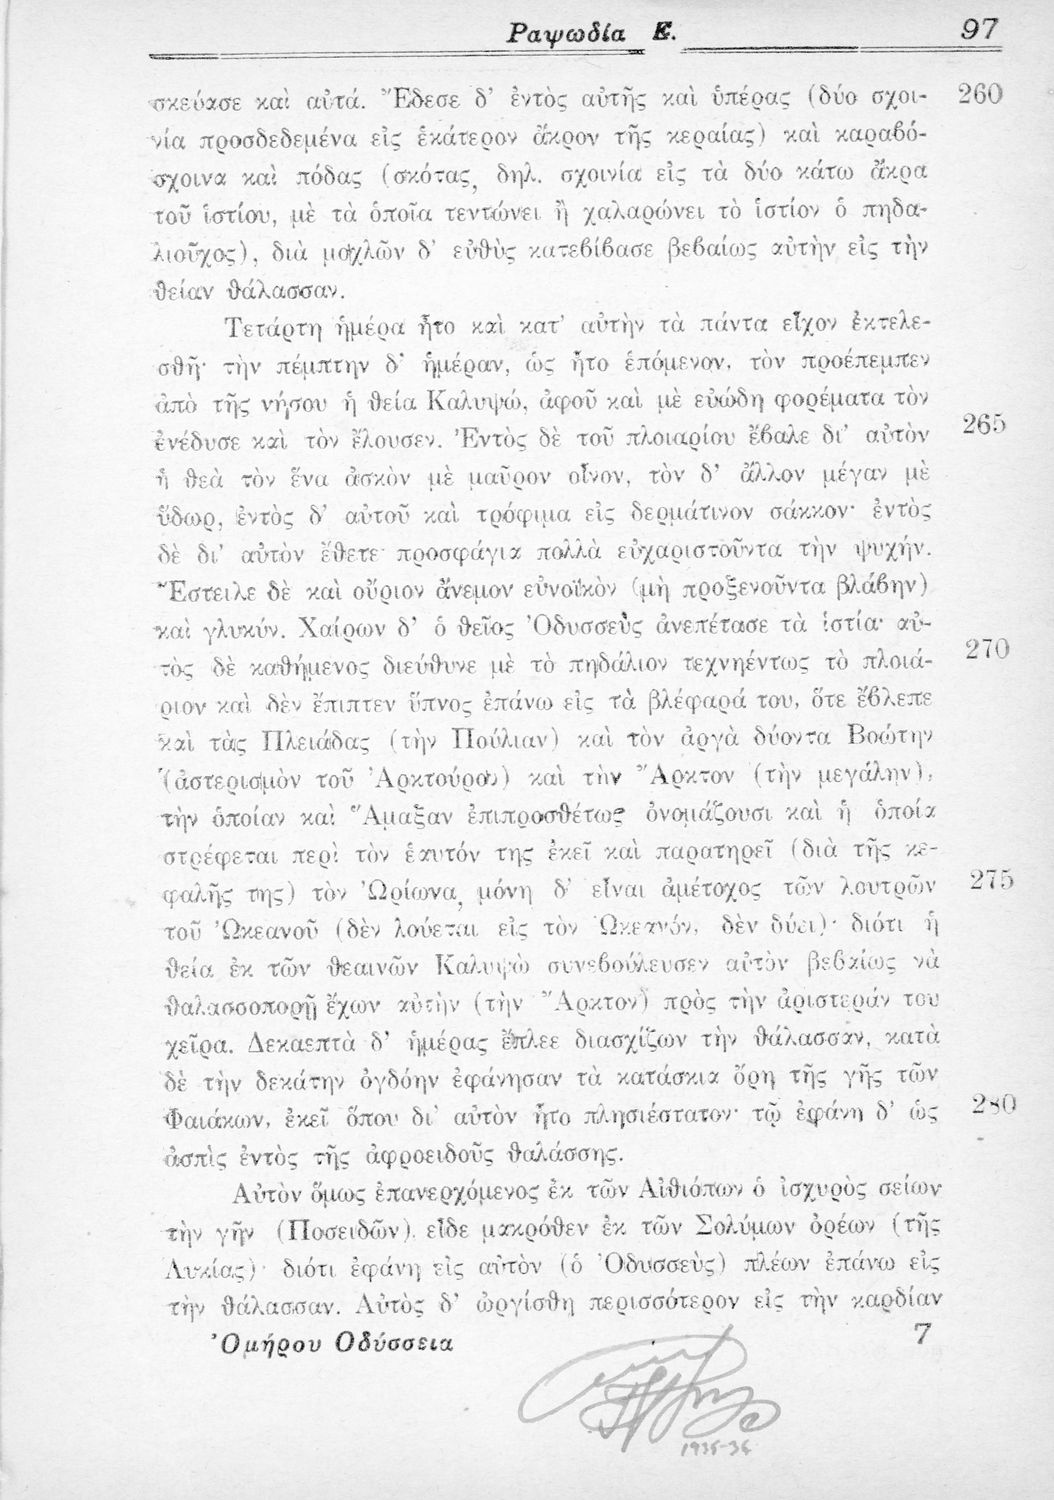 Ραψωδία Ε. 97
σκεύασε καὶ αὐτά. Ἔδεσε δ' ἐντὸς αὐτῆς καὶ ὑπέρας (δύο σχοι- 260
νία προσδεδεμένα εἰς ἑκάτερον ἄκρον τῆς κεραίας) καὶ καραβό-
σχοινα καὶ πόδας (σκότας, δηλ. σχοινία εἰς τὰ δύο κάτω ἄκρα
τοῦ ἱστίου, μὲ τὰ ὁποῖα τεντώνει ἢ χαλαρώνει τὸ ἱστίον ὁ πηδα-
λιοῦχος), διὰ μοχλῶν δ' εὐθὺς κατεβίβασε βεβαίως αὐτὴν εἰς τὴν
θείαν θάλασσαν.
Τετάρτη ἡμέρα ἦτο καὶ κατ' αὐτὴν τὰ πάντα εἶχον ἐκτελε-
σθῆ· τὴν πέμπτην δ' ἡμέραν, ὡς ἦτο ἑπόμενον, τὸν προέπεμπεν
ἀπὸ τῆς νήσου ἡ θεία Καλυψώ, ἀφοῦ καὶ μὲ εὐώδη φορέματα τὸν
ἐνέδυσε καὶ τὸν ἔλουσεν. Ἐντὸς δὲ τοῦ πλοιαρίου ἔβαλε δι' αὐτὸν 265
ἡ θεὰ τὸν ἕνα ἀσκὸν μὲ μαῦρον οἶνον, τὸν δ' ἄλλον μέγαν μὲ
ὕδωρ, ἐντὸς δ' αὐτοῦ καὶ τρόφιμα εἰς δερμάτινον σάκκον· ἐντὸς
δὲ δι' αὐτὸν ἔθετε προσφάγια πολλὰ εὐχαριστοῦντα τὴν ψυχήν.
Ἔστειλε δὲ καὶ οὔριον ἄνεμον εὐνοϊκὸν (μὴ προξενοῦντα βλάβην)
καὶ γλυκύν. Χαίρων δ' ὁ θεῖος Ὀδυσσεὺς ἀνεπέτασε τὰ ἱστία· αὐ-
τὸς δὲ καθήμενος διεύθυνε μὲ τὸ πηδάλιον τεχνηέντως τὸ πλοιά- 270
ριον καὶ δὲν ἔπιπτεν ὕπνος ἐπάνω εἰς τὰ βλέφαρά του, ὅτε ἔβλεπε
καὶ τὰς Πλειάδας (τὴν Πούλιαν) καὶ τὸν ἀργὰ δύοντα Βοώτην
(ἀστερισμὸν τοῦ Ἀρκτούρου) καὶ τὴν Ἄρκτον (τὴν μεγάλην),
τὴν ὁποίαν καὶ Ἅμαξαν ἐπιπροσθέτως ὀνομάζουσι καὶ ἡ ὁποία
στρέφεται περὶ τὸν ἑαυτόν της ἐκεῖ καὶ παρατηρεῖ (διὰ τῆς κε-
φαλῆς της) τὸν Ὠρίωνα, μόνη δ' εἶναι ἀμέτοχος τῶν λουτρῶν 275
τοῦ Ὠκεανοῦ (δὲν λούεται εἰς τὸν Ὠκεανόν, δὲν δύει)· διότι ἡ
θεία ἐκ τῶν θεαινῶν Καλυψὼ συνεβούλευσεν αὐτὸν βεβαίως νὰ
θαλασσοπορῇ ἔχων αὐτὴν (τὴν Ἄρκτον) πρὸς τὴν ἀριστεράν του
χεῖρα. Δεκαεπτὰ δ' ἡμέρας ἔπλεε διασχίζων τὴν θάλασσαν, κατὰ
δὲ τὴν δεκάτην ὀγδόην ἐφάνησαν τὰ κατάσκια ὄρη τῆς γῆς τῶν
Φαιάκων, ἐκεῖ ὅπου δι' αὐτὸν ἦτο πλησιέστατον· τῷ ἐφάνη δ' ὡς 280
ἀσπὶς ἐντὸς τῆς ἀφροειδοῦς θαλάσσης.
Αὐτὸν ὅμως ἐπανερχόμενος ἐκ τῶν Αἰθιόπων ὁ ἰσχυρὸς σείων
τὴν γῆν (Ποσειδῶν), εἶδε μακρόθεν ἐκ τῶν Σολύμων ὀρέων (τῆς
Λυκίας)· διότι ἐφάνη εἰς αὐτὸν (ὁ Ὀδυσσεὺς) πλέων ἐπάνω εἰς
τὴν θάλασσαν. Αὐτὸς δ' ὠργίσθη περισσότερον εἰς τὴν καρδίαν
Ὁμήρου Οδύσσεια 7
1935-36